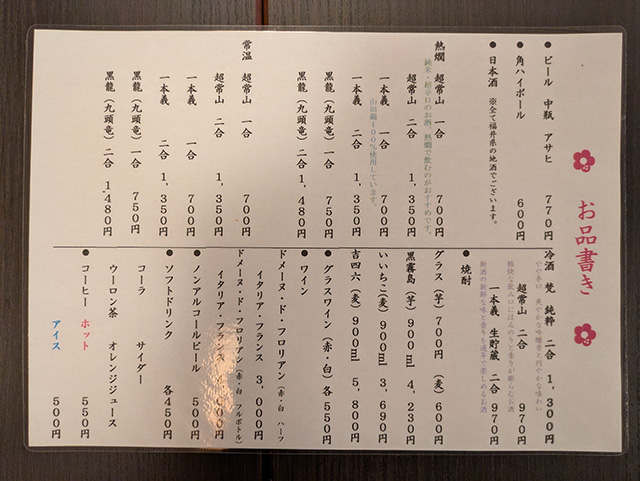 お品書き
●ビール 中瓶 アサヒ 770円
●角ハイボール 600円
●日本酒 ※全て福井県の地酒でございます。
熱燗 超常山 一合 700円
純米・超辛口のお酒、熱燗で飲むのがおすすめです。
超常山 二合 1,350円
一本義 一合 700円
山田錦100%使用しています。
一本義 二合 1,350円
黒龍(九頭竜)一合 750円
黒龍(九頭竜)二合 1,480円
常温 超常山 一合 700円
超常山 二合 1,350円
一本義 一合 700円
一本義 二合 1,350円
黒龍(九頭竜)一合 750円
黒龍(九頭竜)二合 1,480円
冷酒 梵 純粋 二合 1,300円
やや辛口 爽やかな吟醸香と円やかな味わい
超常山 二合 970円
軽快な飲み口にほんのりと香りが膨らむお酒
一本義 生貯蔵 二合 970円
新酒の新鮮な味と香りを通年で楽しめるお酒
●焼酎
グラス(芋)700円 (麦)600円
黒霧島(芋)900ml 4,230円
いいちこ(麦)900ml 3,690円
吉四六(麦)900ml 5,800円
●グラスワイン(赤・白)各550円
●ワイン
ドメーヌ・ド・フロリアン(赤・白 ハーフ
イタリア・フランス 3,000円
ドメーヌ・ド・フロリアン(赤・白 フルボトル)
イタリア・フランス 000円
●ノンアルコールビール 500円
●ソフトドリンク 各450円
コーラ サイダー
ウーロン茶 オレンジジュース
●コーヒー ホット 550円
アイス 500円